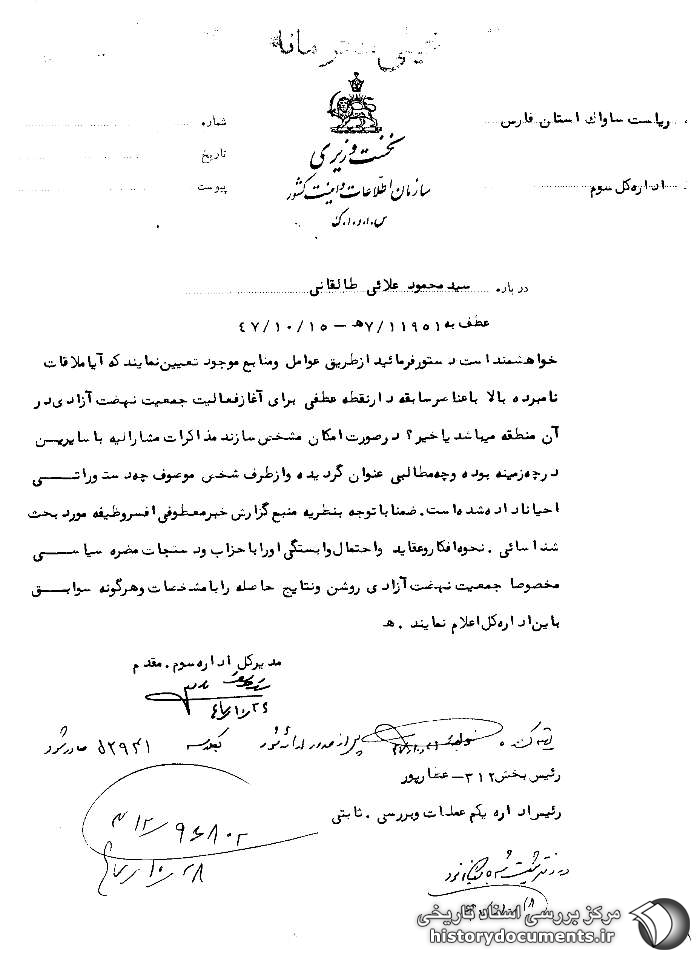 خیلی محرمانه
ریاست ساواک استان فارس
شماره
نخست وزیری
تاریخ
اداره کل سوم
سازمان اطلاعات و امنیت کشور
پیوست
س.ا.و.ا.ک
درباره سید محمود علائی طالقانی
عطف به ۷/۱۱۹۵۱هـ - ۴۷/۱۰/۱۵
خواهشمند است دستور فرمائید از طریق عوامل ومنابع موجود تعیین نمایند که آیا ملاقات
نامبرده بالا با عناصر سابقه دار نقطه عطفی برای آغاز فعالیت جمعیت نهضت آزادی در
آن منطقه میباشد یا خیر؟ در صورت امکان مشخص سازند مذاکرات مشارالیه با سایرین
در چه زمینه بوده وچه مطالبی عنوان گردیده واز طرف شخص موصوف چه دستوراتی
احیانا داده شده است. ضمنا با توجه بنظریه منبع گزارش خبر معطوفی افسر وظیفه مورد بحث
شناسائی . نحوه افکار و عقاید واحتمال وابستگی او را با حزاب و دستجات مضره سیاسی
مخصوصا جمعیت نهضت آزادی روشن ونتایج حاصله را با مشخصات وهرگونه سوابق
باین اداره کل اعلام نمایند . هـ
مدیرکل اداره سوم . مقدم
۴۷/۱۰/۲۴
تهیه کننده
پس از صدور
۵۲۹۴۱ صادر شود
رئیس بخش ۳۱۲ - عطارپور
رئیس اداره یکم عملیات وبررسی . ثابتی
۴۷/۱۰/۲۸
مرکز بررسی اسناد تاریخی
historydocuments.ir